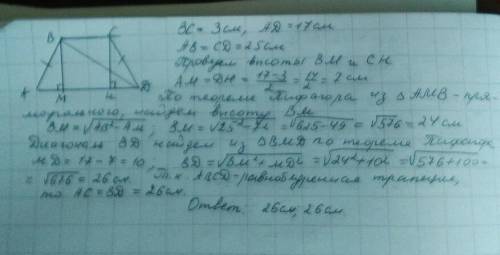 B C
A M H D
BC = 3 см, AD = 17 см
AB = CD = 25 см
Проведем высоты BM и CH
AM = DH = 17-3/2 = 14/2 = 7 см
По теореме Пифагора из △AMB - пря-
моугольного, найдем высоту BM
BM = √AB²-AM²; BM = √25²-7² = √625-49 = √576 = 24 см
Диагональ BD найдем из △BMD по теореме Пифагора
MD = 17 - 7 = 10, BD = √BM²+MD² = √24²+10² = √576+100 =
= √676 = 26 см. Т.к. ABCD - равнобедренная трапеция,
то AC = BD = 26 см.
Ответ: 26 см, 26 см.